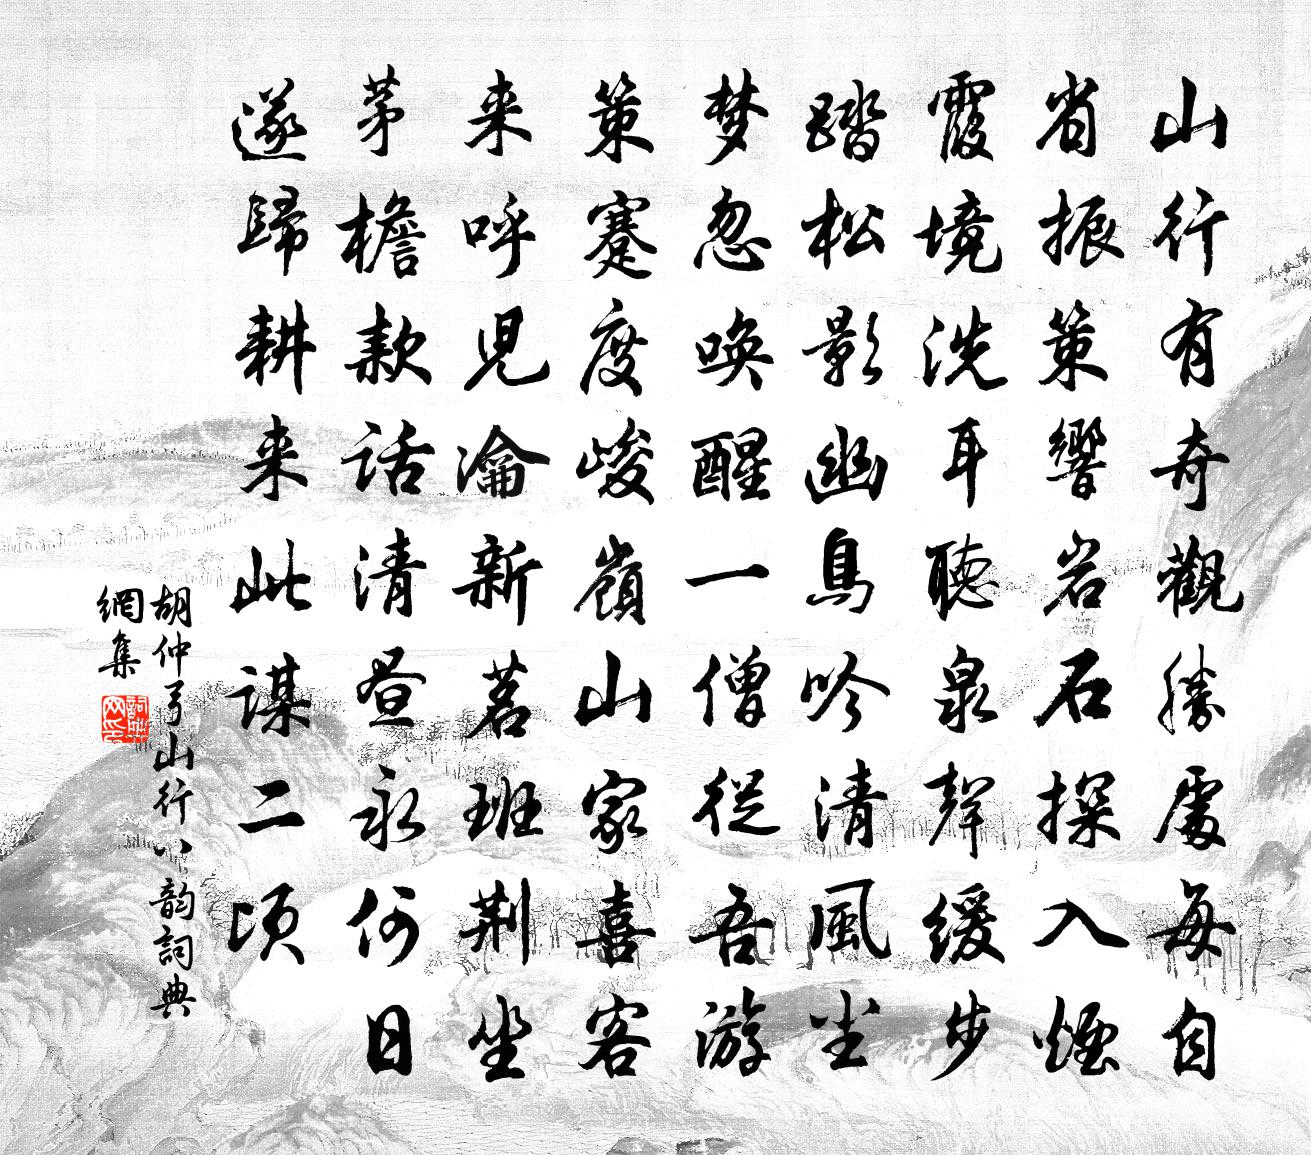 山行有奇觀勝處每自
省振策響岩石探入煙
霞境洗耳聽泉聲緩步
踏松影幽鳥吟清風尘
梦忽唤醒一僧從吾游
策蹇度峻嶺山家喜客
来呼児瀹新茗班荆坐
茅檐款話清昼永何日
遂歸耕来此謀二頃
胡仲弓山行八韵詞典
網集